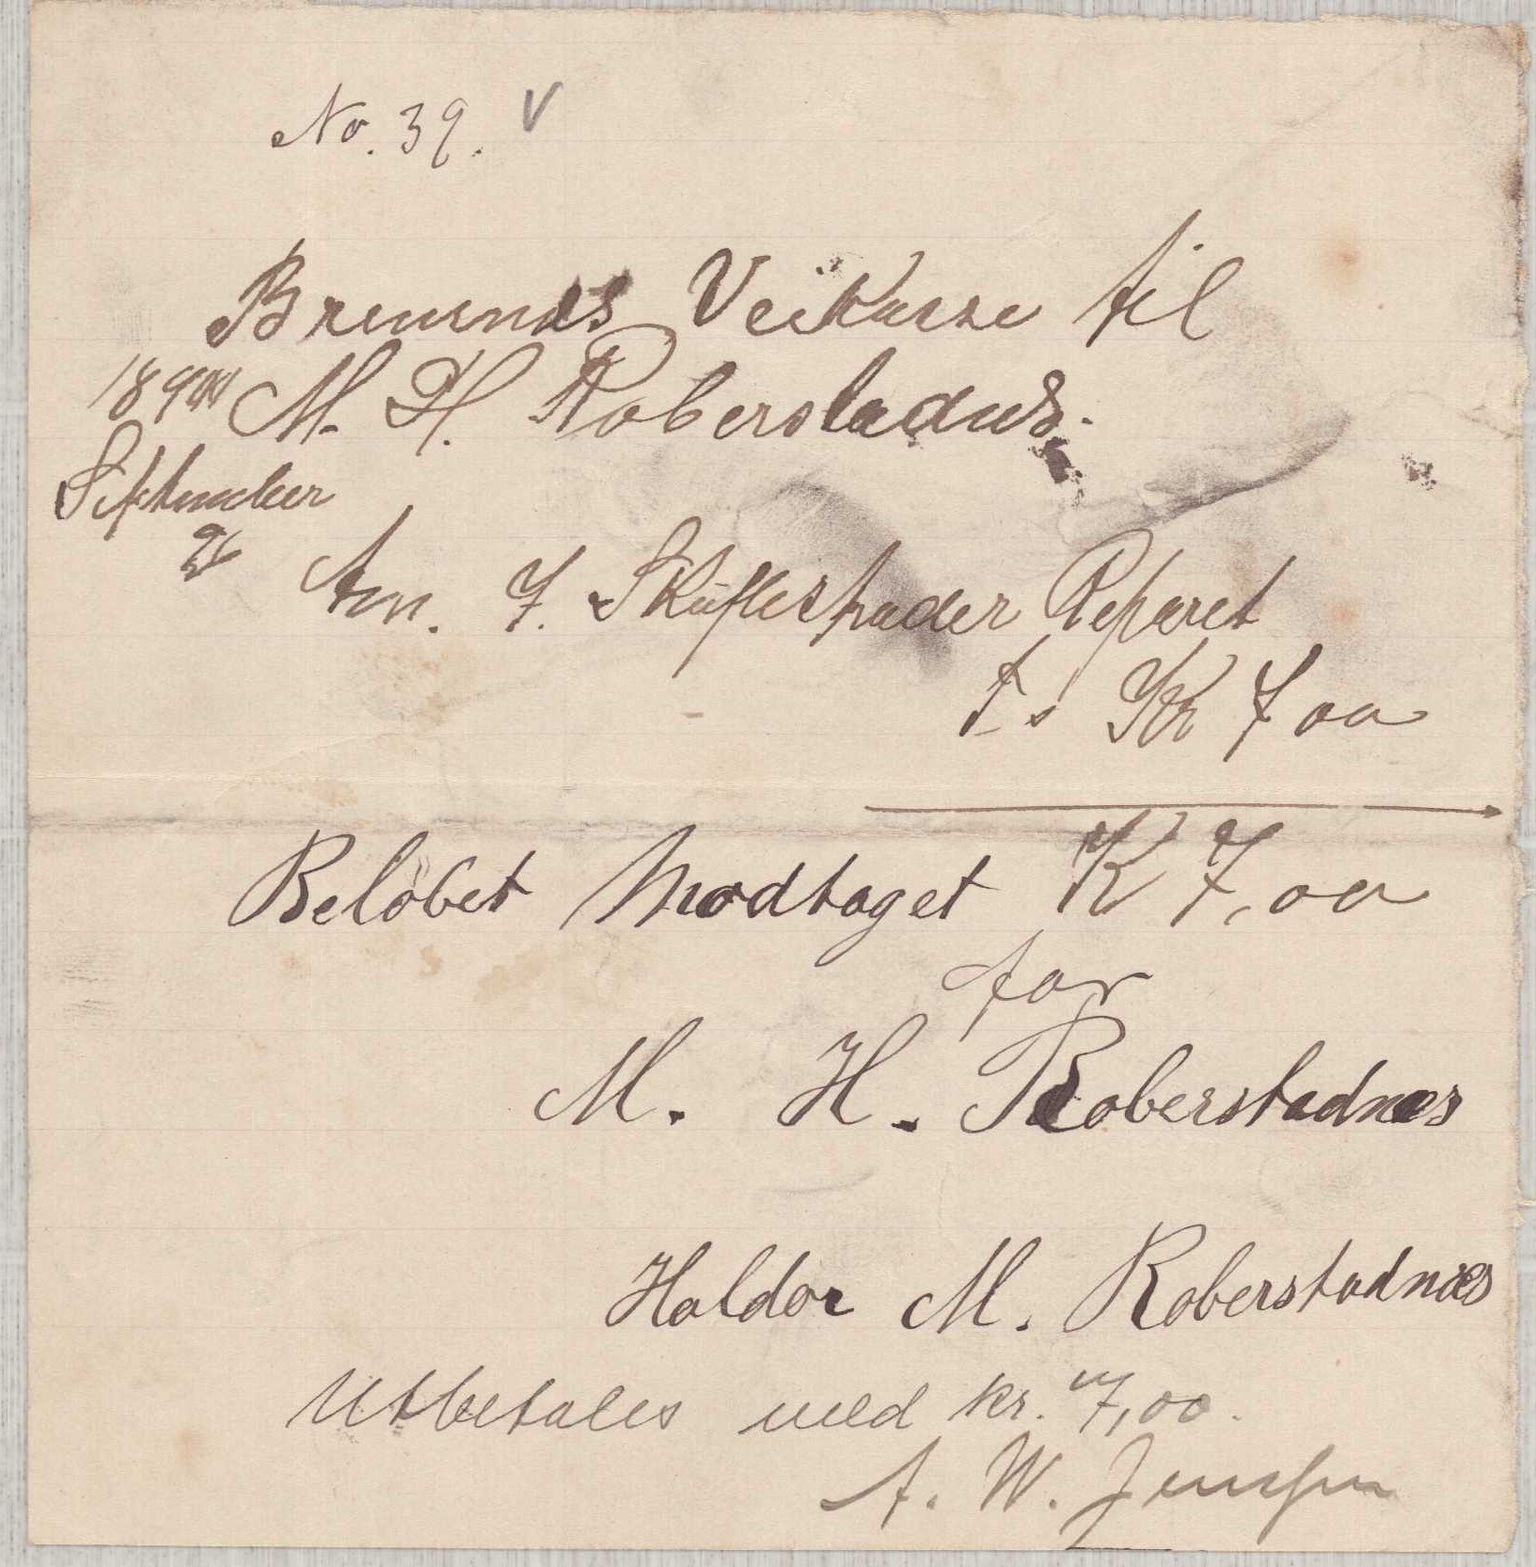 No. 39. V
Bremnes Veikasse til
M. H. Roberstadnes.
September
7. Skuflespader Reparet
Kr 7 00
Beløbet Modtaget K 7,00
for
M. H. Roberstadnæs
Haldor M. Roberstadnæs
Utbetales med kr. 7,00.
A. W. Jensen